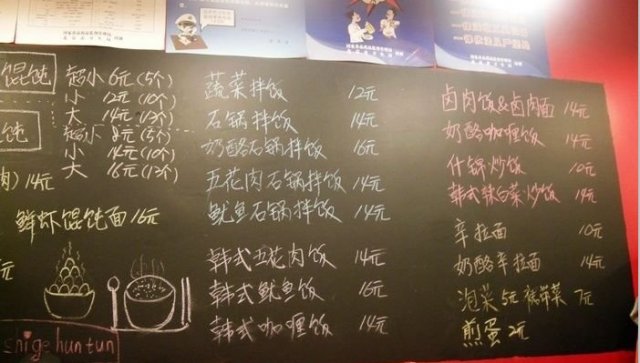 馄饨
超小 6元(5个)
小 12元(10个)
大 14元(12个)
饨
超小 8元(5个)
小 14元(10个)
大 16元(12个)
肉) 14元
鲜虾馄饨面 16元
元
shige huntun
蔬菜拌饭 12元
石锅拌饭 14元
奶酪石锅拌饭 16元
五花肉石锅拌饭 14元
鱿鱼石锅拌饭 14元
韩式五花肉饭 14元
韩式鱿鱼饭 16元
韩式咖喱饭 14元
卤肉饭&卤肉面 14元
奶酪咖喱饭 14元
什锦炒饭 10元
韩式辣白菜炒饭 14元
辛拉面 10元
奶酪辛拉面 14元
泡菜 5元 裙带菜 7元
煎蛋 2元